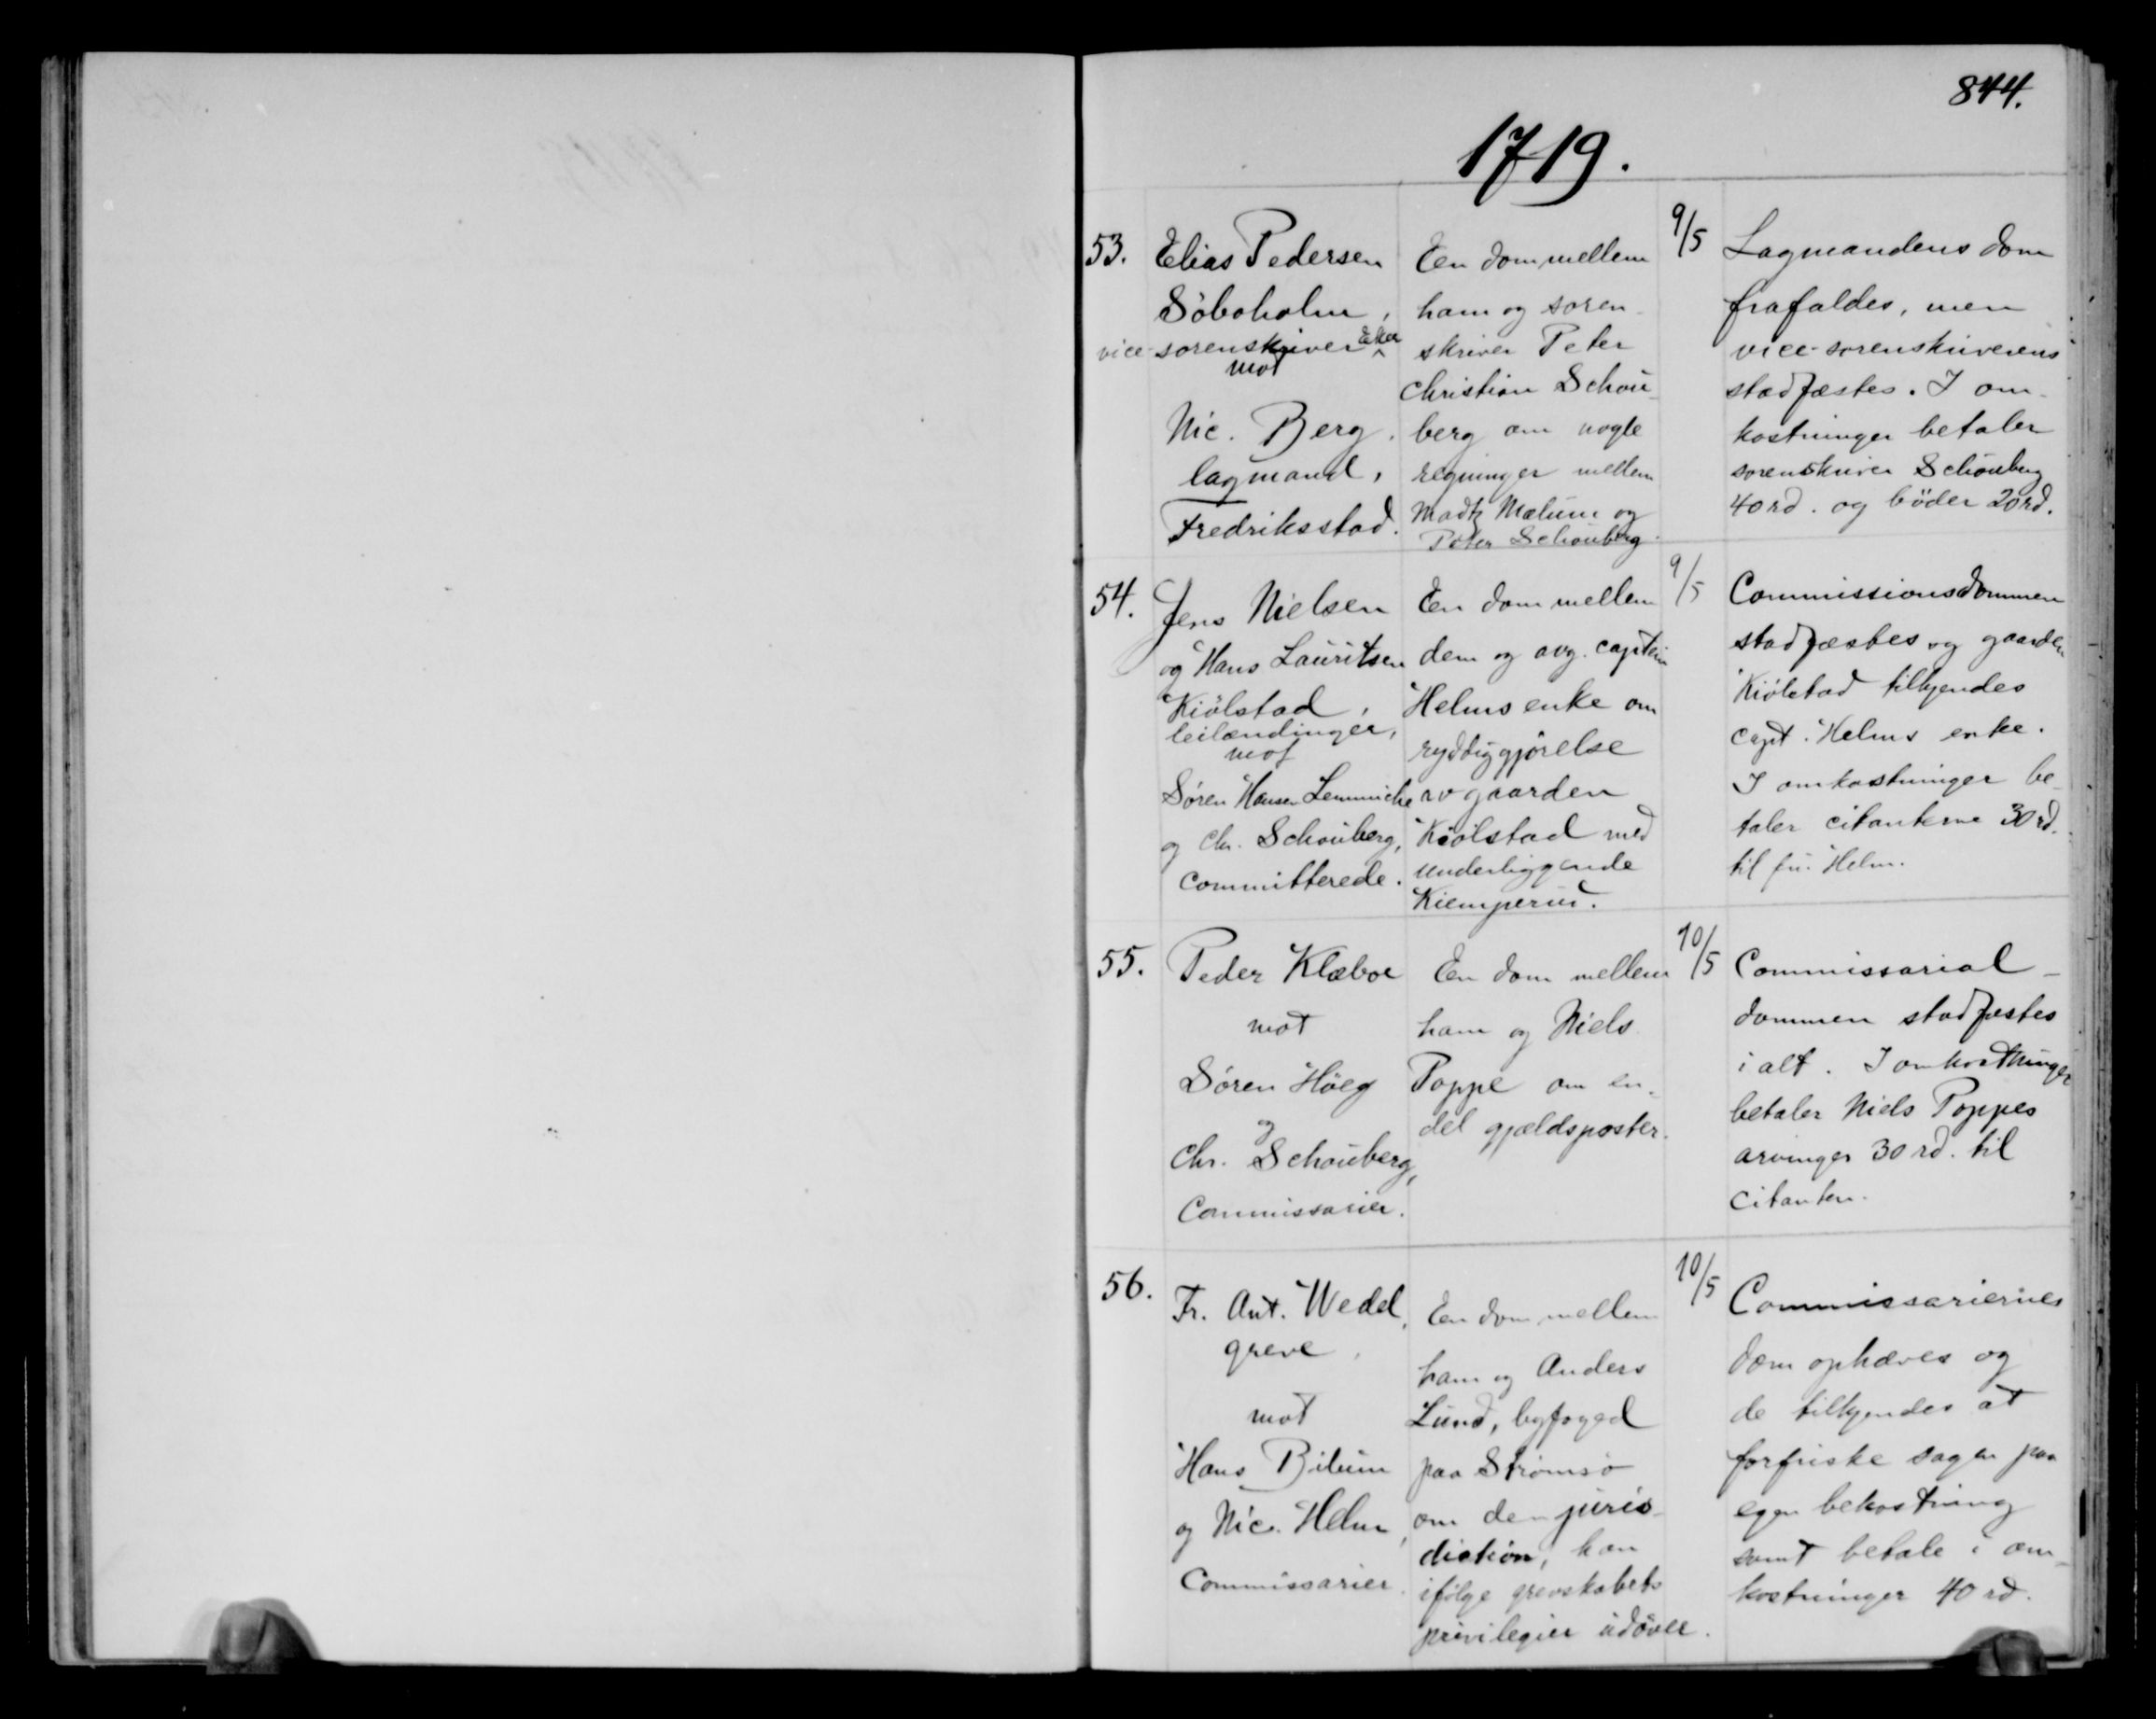 844.
1719.
53.
Elias Pedersen
Söboholm,
vice-sorenskriver Eker
mot
Nic. Berg,
lagmand,
Fredriksstad.
En dom mellem
ham og soren-
skriver Peter
Christian Schou-
berg om nogle
regninger mellem
Madtz Mælum og
Peter Schouberg.
9/5
Lagmandens dom
frafaldes, men
vice-sorenskriverens
stadfæstes. I om-
kostninger betaler
sorenskriver Schouberg
40 rd. og böder 20 rd.
54.
Jens Nielsen
og Hans Lauritsen
Kiölstad,
leilændinger,
mot
Sören Hansen Lemmiche
og Chr. Schouberg,
committerede.
En dom mellem
dem og avg. captein
Helms enke om
ryddiggjörelse
av gaarden
Kiölstad med
underliggende
Kiemperud.
9/5
Commissionsdommen
stadfæstes og gaarden
Kiölstad tilkjendes
capt. Helms enke.
I omkostninger be-
taler citanterne 30 rd.
til fru Helm.
55.
Peder Klæboe
mot
Sören Höeg
og
Chr. Schouberg,
Commissarier.
En dom mellem
ham og Niels
Poppe om en-
del gjældsposter.
10/5
Commissarial-
dommen stadfæstes
i alt. I omkostninger
betaler Niels Poppes
arvinger 30 rd. til
citanten.
56.
Fr. Ant. Wedel,
greve,
mot
Hans Bilum
og Nic. Helm,
Commissarier.
En dom mellem
ham og Anders
Lund, byfoged
paa Strömsö
om den juris-
diction, han
ifölge grevskabets
privilegier udöver.
10/5
Commissariernes
dom ophæves og
de tilkjendes at
forfriske sagen paa
egen bekostning
samt betale i om-
kostninger 40 rd.